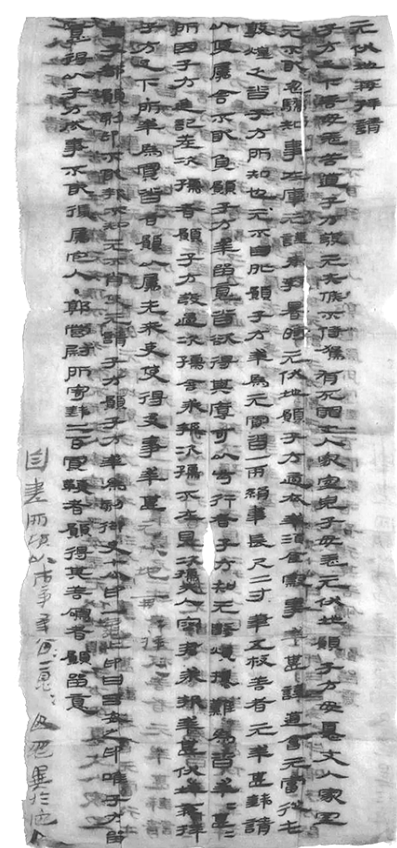 元伏地再拜請
子方足下善毋恙苦道子方發元失候不侍駕有死罪丈人家室兒子毋恙元伏地願子方毋憂丈人家室
元不敢忽驕知事在庫元謹奉教暑時元伏地願子方適衣幸酒食察事幸甚謹道會元當從屯
敦煌乏沓子方所知也元不自外願子方幸爲元買沓一兩絹韋長尺二寸筆五枚善者元幸甚錢請
以便屬舍不敢負願子方幸留意沓欲得其厚可以步行者子方知元數煩擾難爲沓幸甚=
所因子方進記差次孺者願子方發過次孺舍求報次孺不在見次孺夫人容君求報幸甚伏地再拜
子方足下·所幸爲買沓者願以屬先來吏使得及事幸甚元伏地再拜再拜
·呂子都願刻印不敢報不知元不肖使元請子方願子方幸爲刻御史七分印一龜上印曰呂安之印唯子方留
意得以子方成事不敢復屬它人·郭營尉所寄錢二百買鞭者願得其善鳴者願留意
自書所願以市事幸留意=毋忽異於它人